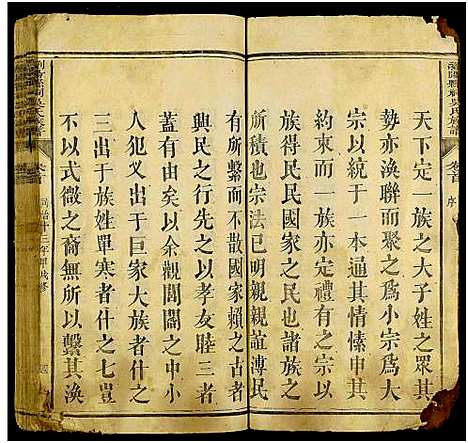 瀏陽縣祠吳氏族譜
卷首
序
天下定一族之大子姓之眾其
勢亦渙聯而聚之為小宗為大
宗以統于一本通其情愫申其
約束而一族亦定禮有之宗以
族得民民國之民也而諸族之
所積也宗法已明親親誼溥民
有所繫而不散國家賴之古者
興民之行先之以孝友睦三者
蓋有由矣以余觀閭閻之中小
人犯义出于巨家大族者什之
三出于族姓單寒者什之七豈
不以式微之裔無所以繫其渙
卷首
同治十三年甲戌修
四